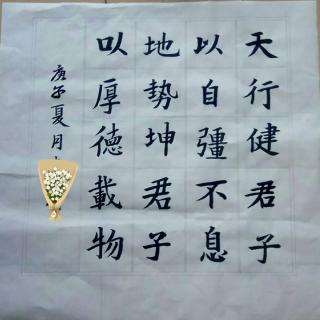 天行健君子
以自彊不息
地勢坤君子
以厚德載物
庚子夏月